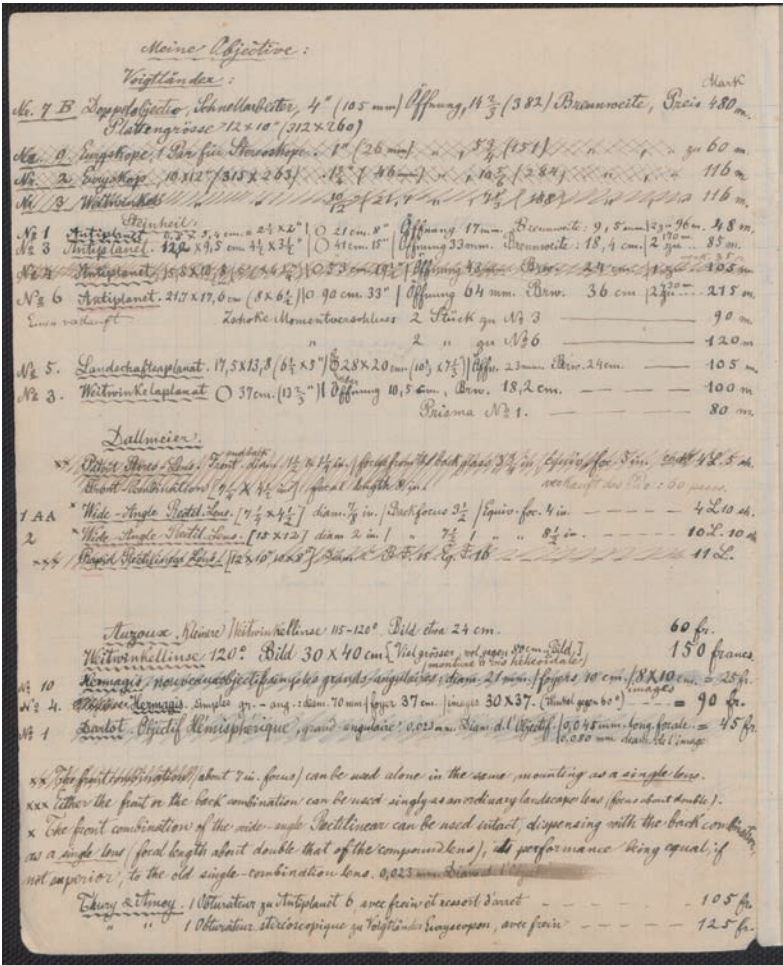 Meine Objective:
Voigtländer:
Mark
Nr. 7 B Doppelobjectiv, Schnellarbeiter, 4" (105 mm) Öffnung, 14 2/3 (382) Brennweite, Preis 480 m.
Plattengrösse 12 x 10" (312 x 260)
Nr. 0 Euryskope, 1 Par für Stereoskope. 1" (26 mm) " , 5 3/4 (151) " , " zu 60 m.
Nr. 2 Euryskop, 10 x 12" (315 x 263) (46 mm) " , 10 5/6 (284) 116 m
Nr. 3 Weitwinkel 116 m.
Steinheil:
№ 1 Antiplanet 5,4 cm = 2 1/2 x 2" | O 21 cm. 8" Öffnung 17 mm. Brennweite: 9,5 mm | 48 m.
№ 3 Antiplanet. 12 x 9,5 cm 4 1/2 x 3 1/2" | O 41 cm. 15" | Öffnung 33 mm. Brennweite: 18,4 cm. | 2 zu 85 m.
№ 4 Antiplanet 15,8 x 10,8 | O 53 cm 19 1/2" | Öffnung 43 mm Brw. 24 cm 105 m
№ 6 Antiplanet. 21,7 x 17,6 cm (8 x 6 1/2) | O 90 cm. 33" | Öffnung 64 mm. Brw. 36 cm | 2 zu 215 m.
Einen verkauft Zschoke Momentverschluss 2 Stück zu № 3 90 m.
" 2 " zu № 6 120 m
№ 5. Landschaftsaplanat. 17,5 x 13,8 (6 1/2 x 5") | O 28 x 20 cm. (10 1/2 x 7 1/2) | Öffn. 23 mm. Brw. 24 cm. 105 m
№ 3. Weitwinkelaplanat O 37 cm. (13 3/4") | Öffnung 10,5 cm, Brw. 18,2 cm. 100 m
Prisma № 1. 80 m.
Dallmeier.
xx Patent Stereo-Lens. Front and back diam. 1 1/4 & 1 1/2 in. / focus from the back glass 3 3/4 in / Equiv. foc. 5 in. 4 L. 5 sh.
Front-Combination focal length 8 in. verkauft
1 AA x Wide-Angle Rectil. Lens. [7 1/4 x 4 1/2] diam. 7/8 in. / Backfocus 3 1/2 / Equiv. foc. 4 in. 4 L 10 sh.
2 x Wide-Angle Rectil. Lens. [15 x 12] diam 2 in. / " 7 1/2 / " " 8 1/2 in. 10 L. 10 sh
xxx Rapid Rectilinear Lens. [12 x 10, 10 x 8] Diam. B. F. Eq. F. 16 11 L.
Auzoux. Kleinere Weitwinkellinse 115-120° Bild etwa 24 cm. 60 fr.
Weitwinkellinse 120° Bild 30 x 40 cm [Viel grösser, wol gegen 80 cm. Bild,] 150 francs
[monture à vis hélicoïdale]
№ 10 Hermagis, nouveaux objectif simples grands-angulaires: diam. 21 mm. / foyers 10 cm. / 8 x 10 cm. = 25 fr.
№ 4. Hermagis. simples gr.-ang.: diam. 70 mm / foyer 37 cm. / images 30 x 37. (Winkel gegen 60°) = 90 fr.
№ 1 Darlot, Objectif Hémispherique, grand angulaire: 0,023 mm. Diam d. l'Objectif / 0,045 mm. long. focale = 45 fr.
/ 0,080 mm diam. de l'image
xx The front combination (about 7 in. focus) can be used alone in the same mounting as a single lens.
xxx Either the front or the back combination can be used singly as an ordinary landscape lens (focus about double).
x The front combination of the wide-angle Rectilinear can be used intact, dispensing with the back combination,
as a single lens (focal length about double that of the compound lens), its performance being equal, if
not superior, to the old single-combination lens. 0,023 mm Diam d l'Objet
Thury & Amey. 1 Obturateur zu Antiplanet 6, avec frein et ressort d'arret 105 fr.
" " 1 Obturateur stéréoscopique zu Voigtländer Euryscopen, avec frein 125 fr.